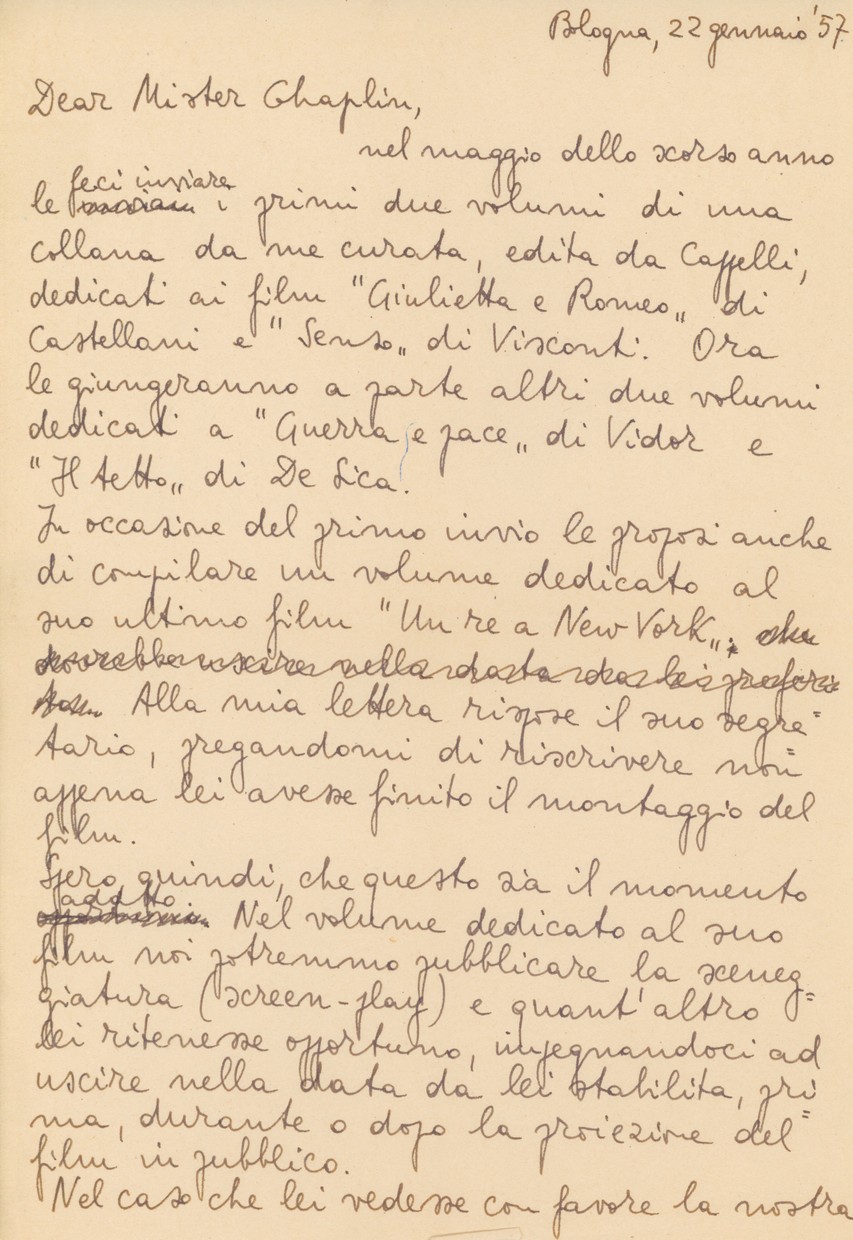 Bologna, 22 gennaio '57
Dear Mister Chaplin,
nel maggio dello scorso anno
feci inviare
le i primi due volumi di una
collana da me curata, edita da Cappelli,
dedicati ai film "Giulietta e Romeo„ di
Castellani e "Senso„ di Visconti. Ora
le giungeranno a parte altri due volumi
dedicati a "Guerra e pace„ di Vidor e
"Il tetto„ di De Sica.
In occasione del primo invio le proposi anche
di compilare un volume dedicato al
suo ultimo film "Un re a New York„. che
dovrebbe uscire nella data da lei preferi
Alla mia lettera rispose il suo segre=
tario, pregandomi di riscrivere non=
appena lei avesse finito il montaggio del
film.
Spero quindi, che questo sia il momento
adatto.
Nel volume dedicato al suo
film noi potremmo pubblicare la sceneg=
giatura (screen-play) e quant'altro
lei ritenesse opportuno, impegnandoci ad
uscire nella data da lei stabilita, pri=
ma, durante o dopo la proiezione del
film in pubblico.
Nel caso che lei vedesse con favore la nostra